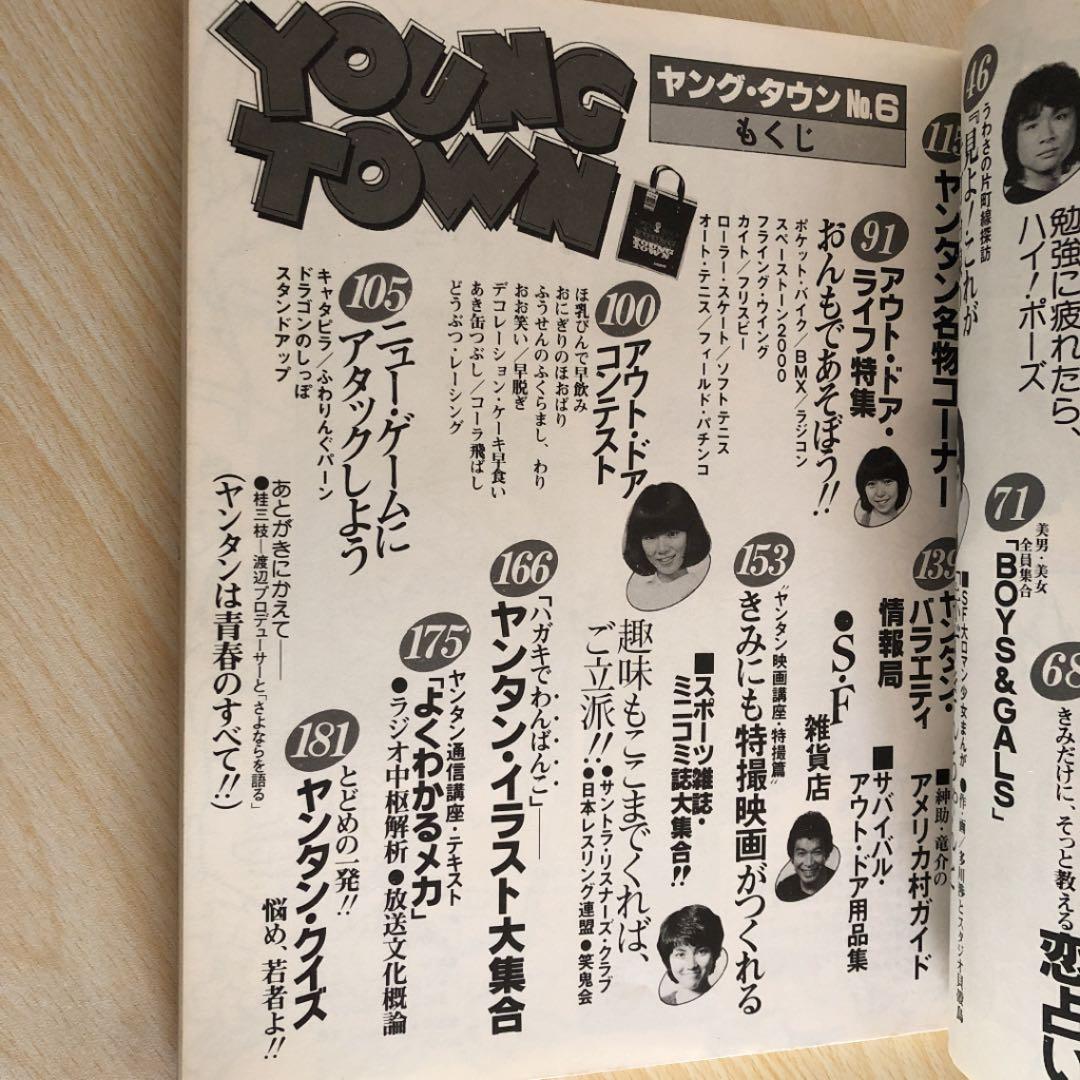 YOUNG
TOWN
ヤング・タウン No.6
もくじ
46
うわさの片町線探訪
『見よ!これが
勉強に疲れたら、
ハイ!ポーズ
71
美男・美女
全員集合
「BOYS&GALS」
68
きみだけに、そっと教える
恋占い
115
ヤンタン名物コーナー
91
アウト・ドア・
ライフ特集
おんもであそぼう!!
ポケット・バイク/BMX/ラジコン
スペースーン2000
フライング・ウイング
カイト/フリスビー
ローラー・スケート/ソフトテニス
オート・テニス/フィールド・パチンコ
100
アウト・ドア
コンテスト
ほ乳びんで早飲み
おにぎりのほおばり
ふうせんのふくらまし、わり
おお笑い/早脱ぎ
デコレーション・ケーキ早食い
あき缶つぶし/コーラ飛ばし
どうぶつ・レーシング
105
ニュー・ゲームに
アタックしよう
キャタピラ/ふわりんぐバーン
ドラゴンのしっぽ
スタンドアップ
139
ヤンタン・
バラエティ
情報局
■SF大ロマン少女まんが
■紳助・竜介の
アメリカ村ガイド
■サバイバル・
アウト・ドア用品集
●S・F
雑貨店
153
"ヤンタン映画講座・特撮篇"
きみにも特撮映画がつくれる
■スポーツ雑誌・
ミニコミ誌大集合!!
趣味もここまでくれば、
ご立派!!
●サントラ・リスナーズ・クラブ
●日本レスリング連盟●笑鬼会
166
「ハガキでわんぱんこ」――
ヤンタン・イラスト大集合
175
ヤンタン通信講座・テキスト
「よくわかるメカ」
●ラジオ中枢解析●放送文化概論
181
とどめの一発!!
ヤンタン・クイズ
悩め、若者よ!!
あとがきにかえて――
●桂三枝―渡辺プロデューサーと「さよならを語る」
(ヤンタンは青春のすべて!!)